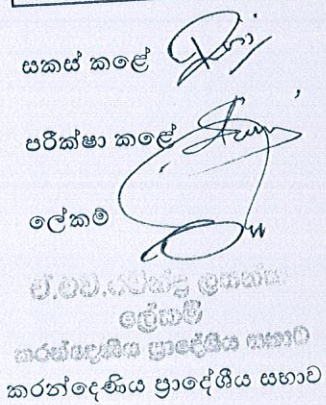 සකස් කළේ
පරීක්ෂා කළේ
ලේකම්
ලේකම්
කරන්දෙණිය ප්‍රාදේශීය සභාව
කරන්දෙණිය ප්‍රාදේශීය සභාව